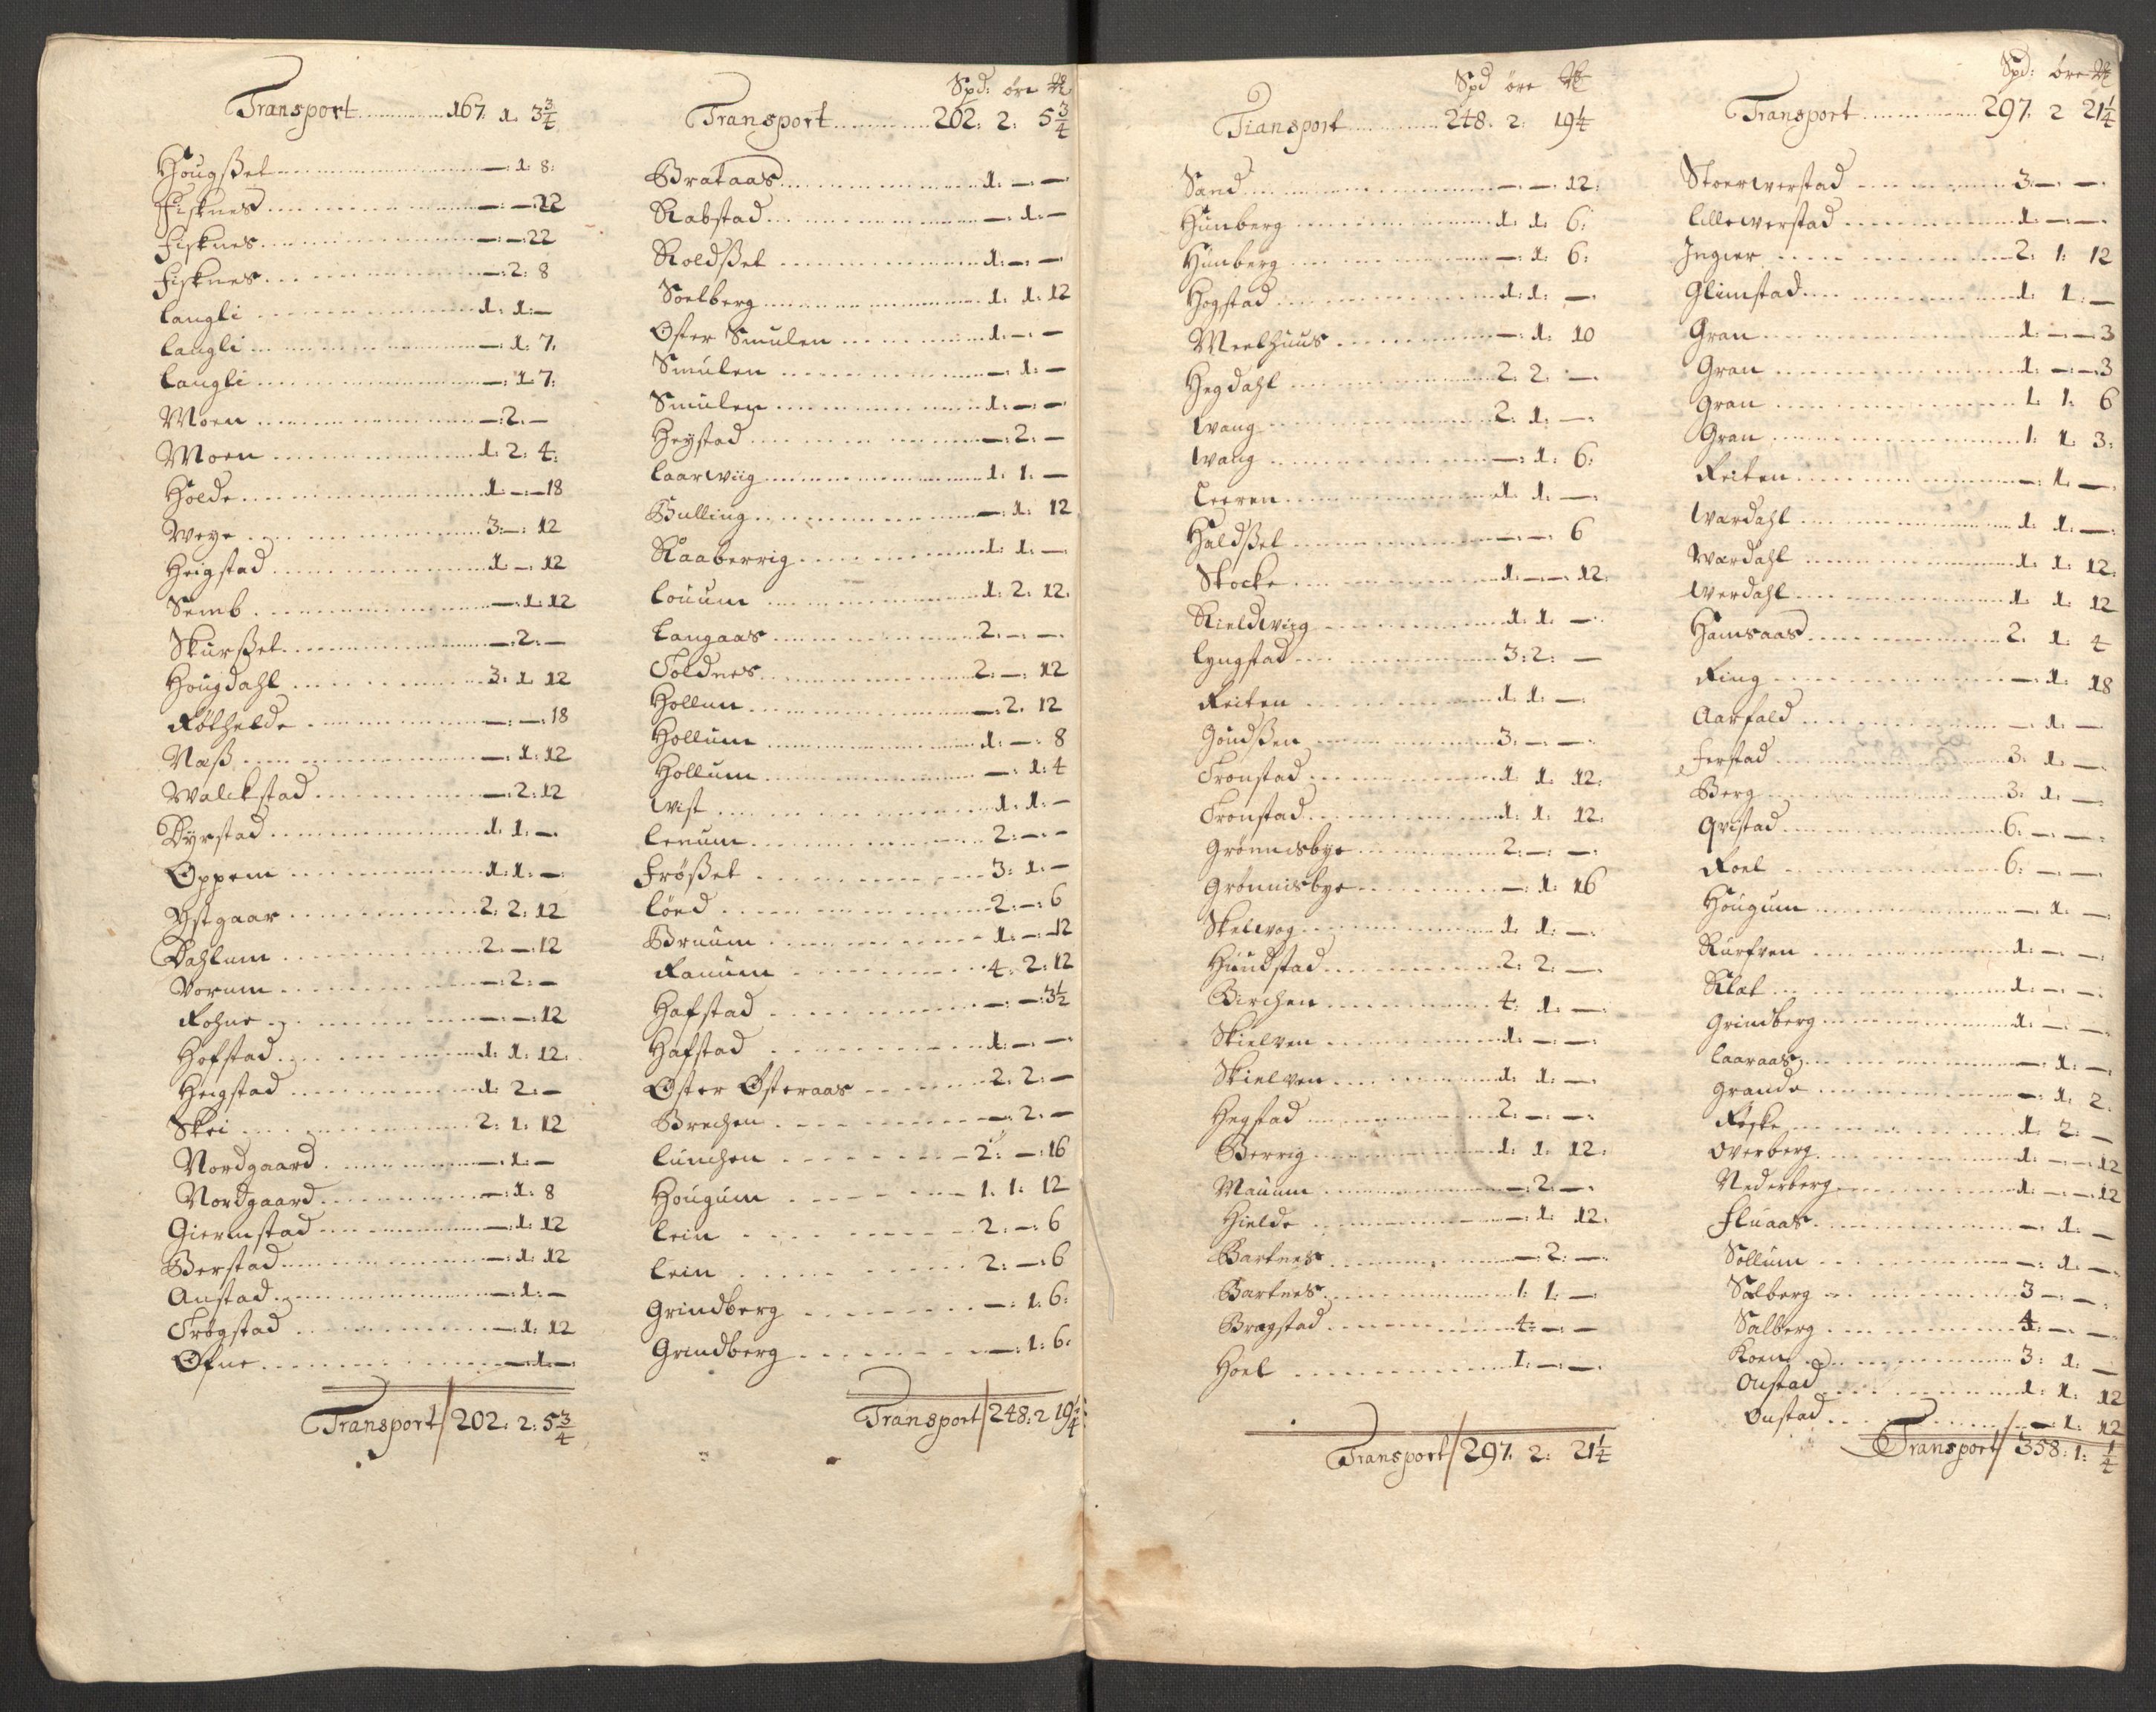 Transport 167. 1. 3 3/4
Hougßet —: 1: 8:
Fisknes —: —: 22
Fisknes —: —: 22
Fisknes —: 2: 8
Langli 1. 1: —
Langli —: 1: 7.
Langli —: 1: 7:
Moen —: 2. —
Moen 1: 2: 4:
Holde 1: —: 18
Weye 3: —: 12
Heigstad 1: —: 12
Semb —: 1: 12
Skurßet —: 2: —
Hougdahl 3: 1: 12
Røthelde —: —: 18
Næß —: 1: 12
Walckstad —: 2: 12
Dyrstad 1: 1: —
Oppem 1: 1: —
Ystgaar 2: 2: 12
Dahlum 2: —: 12
Vorum —: 2: —
Rohne —: —: 12
Hofstad 1: 1: 12:
Hegstad 1: 2: —
Skei 2: 1: 12
Nordgaard —: 1: —
Nordgaard —: 1: 8
Giermstad —: 1: 12
Berstad —: 1: 12
Anstad —: 1: —
Trøgstad —: 1: 12
Ofne —: 1: —
Transport 202: 2: 5 3/4
Spd: öre
Transport 202: 2: 5 3/4
Brataas 1: —: —
Rabstad —: 1: —
Roldßet 1: —: —
Soelberg 1: 1: 12
Oster Smulen 1: —: —
Smulen —: 1: —
Smulen 1: —: —
Heystad —: 2: —
Laarwiig 1: 1: —
Bulling —: 1: 12
Raaberrig 1: 1: —
Louum 1: 2: 12.
Langaas 2: —: —
Toldnes 2: —: 12
Hollum —: 2: 12
Hollum 1: —: 8
Hollum —: 1: 4
Wist 1: 1: —
Leeum 2: —: —
Frößet 3: 1: —
Löed 2: —: 6
Bruum 1: —: 12
Raeum 4: 2: 12
Hafstad —: —: 3 1/2
Hafstad 1: —: —
Oster Osteraas 2: 2: —
Brechen —: 2: —
Lunchen 2: —: 16
Hougum 1: 1: 12
Lein 2: —: 6
Lein 2: —: 6
Grindberg —: 1: 6:
Grindberg —: 1: 6:
Transport 248: 2 19 1/4
Spd öre
Transport 248. 2: 19 1/4
Sand —: —: 12:
Hunberg 1: 1: 6:
Hunberg —: 1: 6:
Hogstad 1: 1: —
Meelhuus —: 1: 10
Hegdahl 2: 2: —
Wang 2: 1: —
Wang —: 1: 6:
Leeren 1: 1: —
Haldßet —: —: 6
Stocke 1: —: 12:
Kieldwiig 1: 1: —
Lyngstad 3: 2: —
Reiten 1: 1: —
Goudßen 3: —: —
Tronstad 1: 1: 12:
Tronstad 1: 1: 12:
Grönnesbye 2: —: —
Grönnisbye —: 1: 16
Skelwog 1: 1: —
Hundstad 2: 2: —
Birchen 4: 1: —
Skielven 1: —: —
Skielven 1: 1: —
Hegstad 2: —: —
Berrig 1: 1: 12:
Mauum —: 2: —
Hielde —: 1: 12:
Bartnes —: 2: —
Bartnes 1: 1: —
Bragstad 4: —: —
Hoel 1: —: —
Transport 297. 2: 21 1/4
Spd: öre
Transport 297. 2 21 1/4
Stoerwerstad 3: —: —
Lillewerstad 1: —: —
Ingier 2: 1: 12
Glimstad 1: 1: —
Gran 1: —: 3
Gran 1: —: 3
Gran 1: 1: 6
Gran 1: 1: 3:
Reiten —: 1: —
Wardahl 1: 1: —
Wardahl 1: 1: 12:
Werdahl 1: 1: 12
Hamsaas 2: 1: 4
Ring —: 1: 18
Aarfald —: 1: —
Ferstad 3: 1: —
Berg 3: 1: —
Qvistad 6: —: —
Roel 6: —: —
Hougum —: 1: —
Kurfven 1: —: —
Klat 1: —: —
Grindberg 1: —: —
Laaraas —: 1: —
Grande —: 1: 2:
Røske 1: 2: —
Overberg 1: —: 12
Nederberg 1: —: 12
Fluaas —: 1: —
Sollum —: 1: —
Salberg 3: —: —
Salberg 4: —: —
Koen 3: 1: —
Onstad 1: 1: 12
Onstad —: 1: 12
Transport 358: 1: 1/4